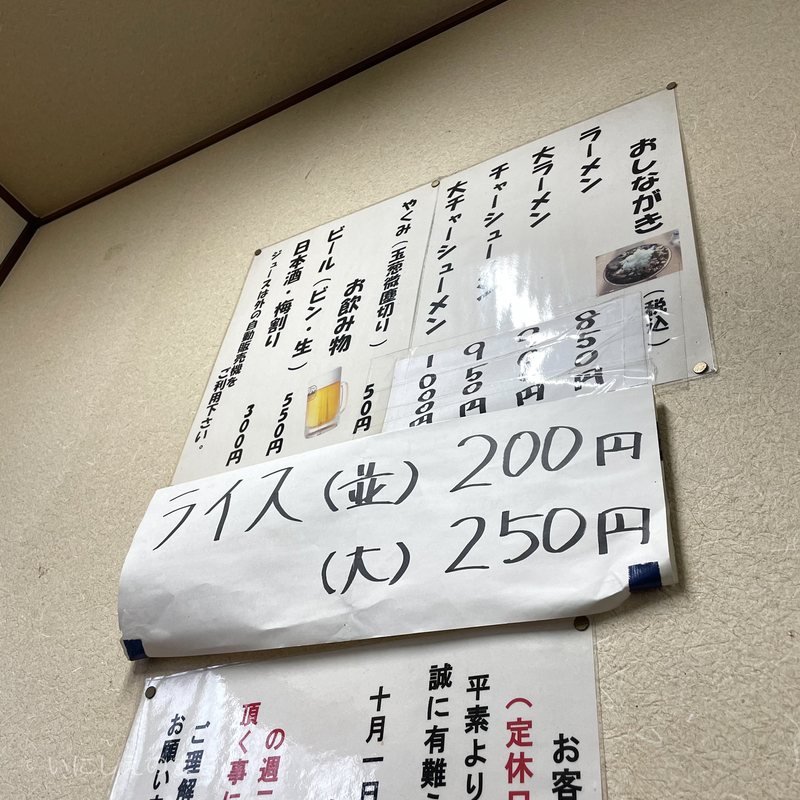 おしながき
(税込)
ラーメン
850円
大ラーメン
チャーシューメン
950円
大チャーシューメン
1000円
やくみ(玉葱微塵切り)
50円
お飲み物
ビール(ビン・生)
550円
日本酒・梅割り
300円
ジュースは外の自動販売機を
ご利用下さい。
ライス(並) 200円
(大) 250円
お客
(定休日
平素より
誠に有難
十月一日
の週
頂く事に
ご理解
お願い